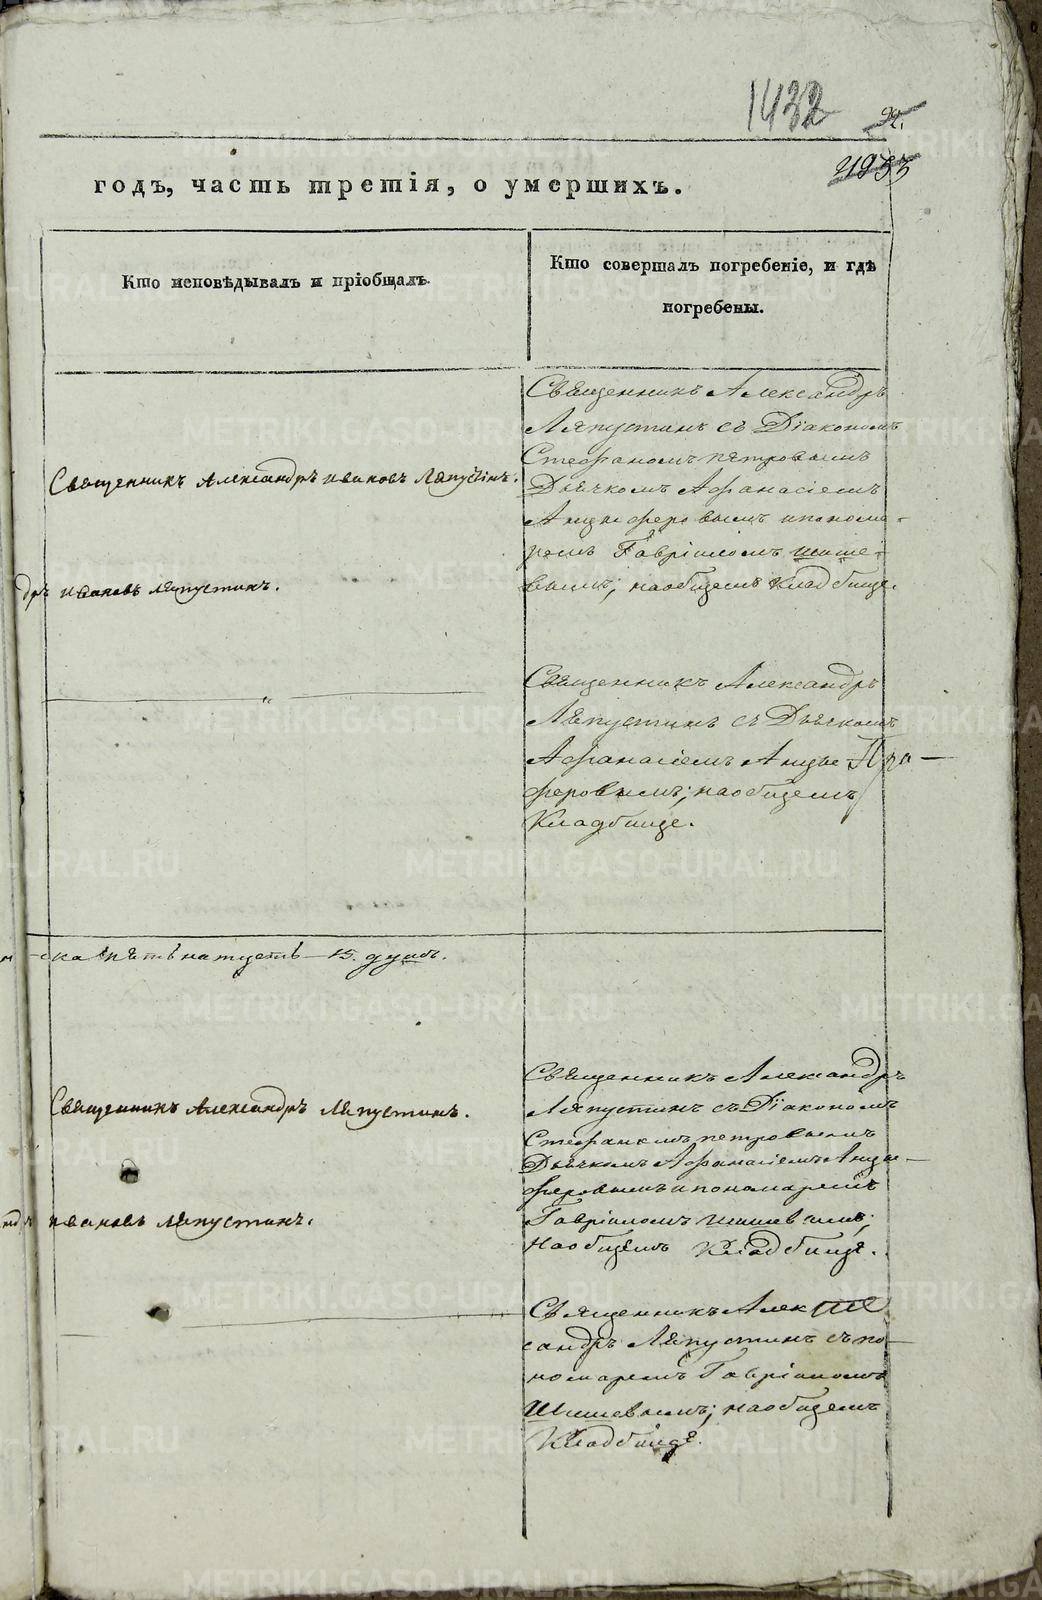 1432
22.
1953
годъ, часть третія, о умершихъ.
Кто исповѣдывалъ и пріобщалъ.
Кто совершалъ погребеніе, и гдѣ
погребены.
Священникъ Александръ Ивановъ Ляпустинъ.
дръ Ивановъ Ляпустинъ.
Священникъ Александръ
Ляпустинъ съ Діакономъ
Стефаномъ Петровымъ
Дьячкомъ Афанасіемъ
Анциферовымъ и понома-
ремъ Гавріиломъ Шише-
вымъ; на общемъ Кладбище.
"
Священникъ Александръ
Ляпустинъ съ Дьячкомъ
Афанасіемъ Анцы
феровымъ; на общемъ
Кладбище.
ска пятьнатцеть 15. душъ.
Священникъ Александръ Ляпустинъ.
Ивановъ Ляпустинъ.
Священникъ Александръ
Ляпустинъ съ Діакономъ
Стефаномъ Петровымъ
Дьячкомъ Афанасіемъ Анцы-
феровымъ и пономаремъ
Гавріиломъ Шишевымъ;
на общемъ Кладбище.
Священникъ Алек
сандръ Ляпустинъ съ по-
номаремъ Гавріиломъ
Шишевымъ; на общемъ
Кладбище.
METRIKI.GASO-URAL.RU